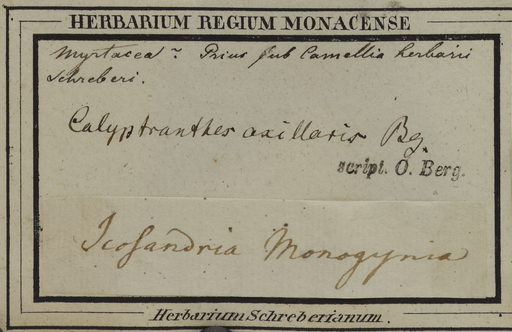 HERBARIUM REGIUM MONACENSE
Myrtacea ~ Prius sub Camellia herbarii
Schreberi.
Calyptranthes axillaris Bg.
script. O. Berg.
Icosandria Monogynia
Herbarium Schreberianum.